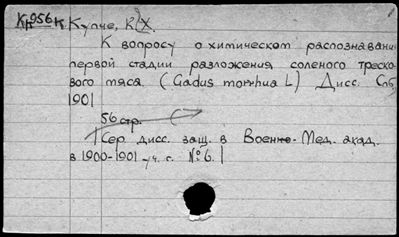 Купче, К. Х.
К вопросу о химическом распознавани
первой стадии разложения соленого треско-
вого мяса. (Gadus morrhua L) Дисс. Спб,
1901
56 стр.
(Сер. дисс. защ. в Военно-Мед. акад.
в 1900-1901 уч. г. № 6.)